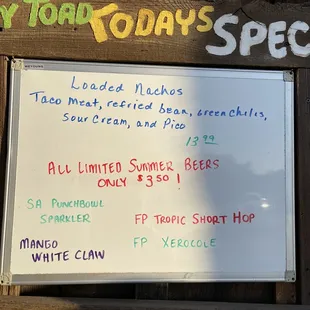 Y TOAD TODAYS SPEC
Loaded Nachos
Taco meat, refried bean, green chiles,
sour cream, and Pico
13.99
ALL LIMITED SUMMER BEERS
ONLY $3.50!
SA PUNCHBOWL
SPARKLER
FP TROPIC SHORT HOP
MANGO
WHITE CLAW
FP XEROCOLE